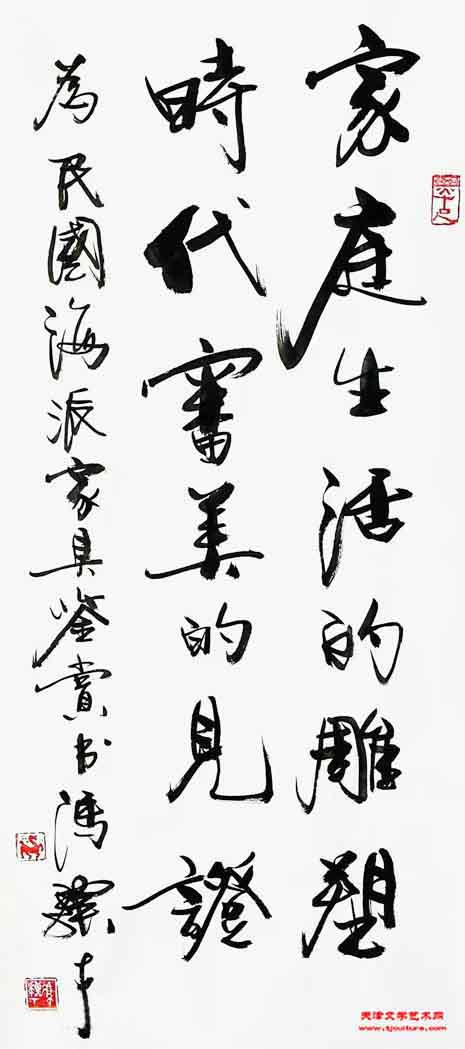 家庭生活的雕塑
時代審美的見證
為民國海派家具鑒賞书馮驥才
天津文学艺术网
www.tjculture.com